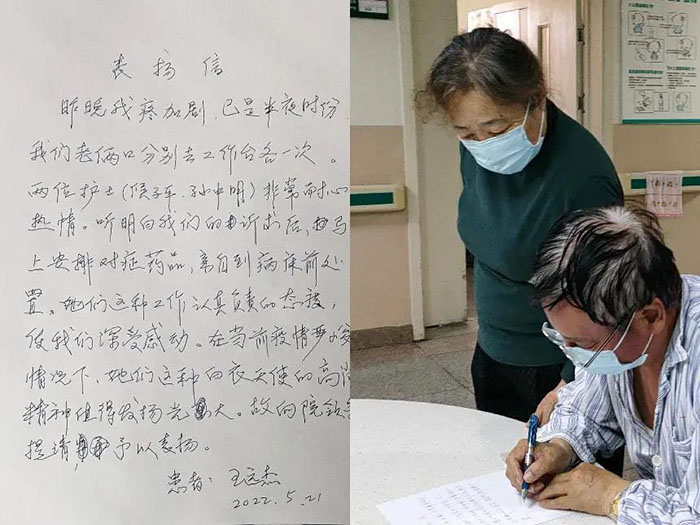 表扬信
昨晚我疼加剧,已是半夜时份,
我们老俩口分别去工作台各一次。
两位护士(侯子军、孙中明)非常耐心
热情。听明白我们的诉求后,马
上安排对症药品,亲自到病床前处
置。她们这种工作认真负责的态度,
使我们深受感动。在当前疫情
情况下,她们这种白衣天使的高尚
精神值得发扬光大。故向院领
提请予以表扬。
患者:王远杰
2022.5.21